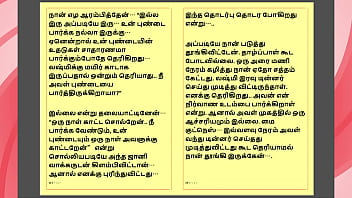 நான் எழ ஆரம்பித்தேன்--- "இல்ல
இரு அப்படியே இரு--- உன் புண்டை
பார்க்க நல்லா இருக்கு---
ஏனென்றால் உன் புண்டையின்
உதடுகள் சாதாரணமா
பார்க்கும்போதே தெரிகிறது---
லஷ்மிக்கு மயிர் காடாக
இருப்பதால் ஒன்றும் தெரியாது.. நீ
அவள் புண்டையை
பார்த்திருக்கிறாயா?"
இல்லை என்று தலையாட்டினேன்---
"ஒரு நாள் காட்ட சொல்றேன்.. நீ
பார்க்க வேண்டும், உன்
புண்டையும் ஒரு நாள் அவளுக்கு
காட்டறேன்" என்று
சொல்லியபடியே அந்த ஜானி
வாக்கருடன் கிளம்பிவிட்டான்---
ஆனால் எனக்கு புரிந்துவிட்டது---
இந்த தொடர்பு தொடர போகிறது
என்று---.
அப்படியே நான் படுத்து
தூங்கிவிட்டேன். தாழ்ப்பாள் கூட
போடவில்லை. ஒரு அரை மணி
நேரம் கழித்து நான் ஏதோ சத்தம்
கேட்டது. லஷ்மி இரவு டின்னர்
செய்து முடித்து விட்டிருந்தாள்.
எனக்கு தெரிகிறது.. அவள் என்
நிர்வாண உடம்பை பார்க்கிறாள்
என்று. ஆனால் அவள் முகத்தில் ஒரு
ஆச்சரியமும் இல்லை. மை
குட்னெஸ்--- இவ்வளவு நேரம் அவள்
வந்து டின்னர் செய்து
முடித்துவிட்டது கூட தெரியாமல்
நான் தூங்கி இருக்கேன்---.